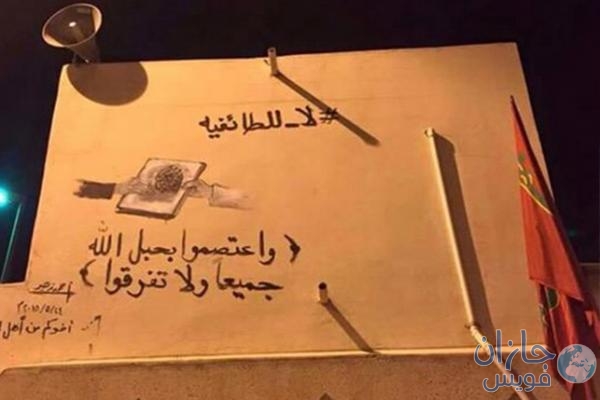 #لا_للطائفيه
﴿ واعتصموا بحبل الله
جميعا ولا تفرقوا ﴾
٢٠١٥/٥/٢٤
أخوكم من أهل
جازان
فويس